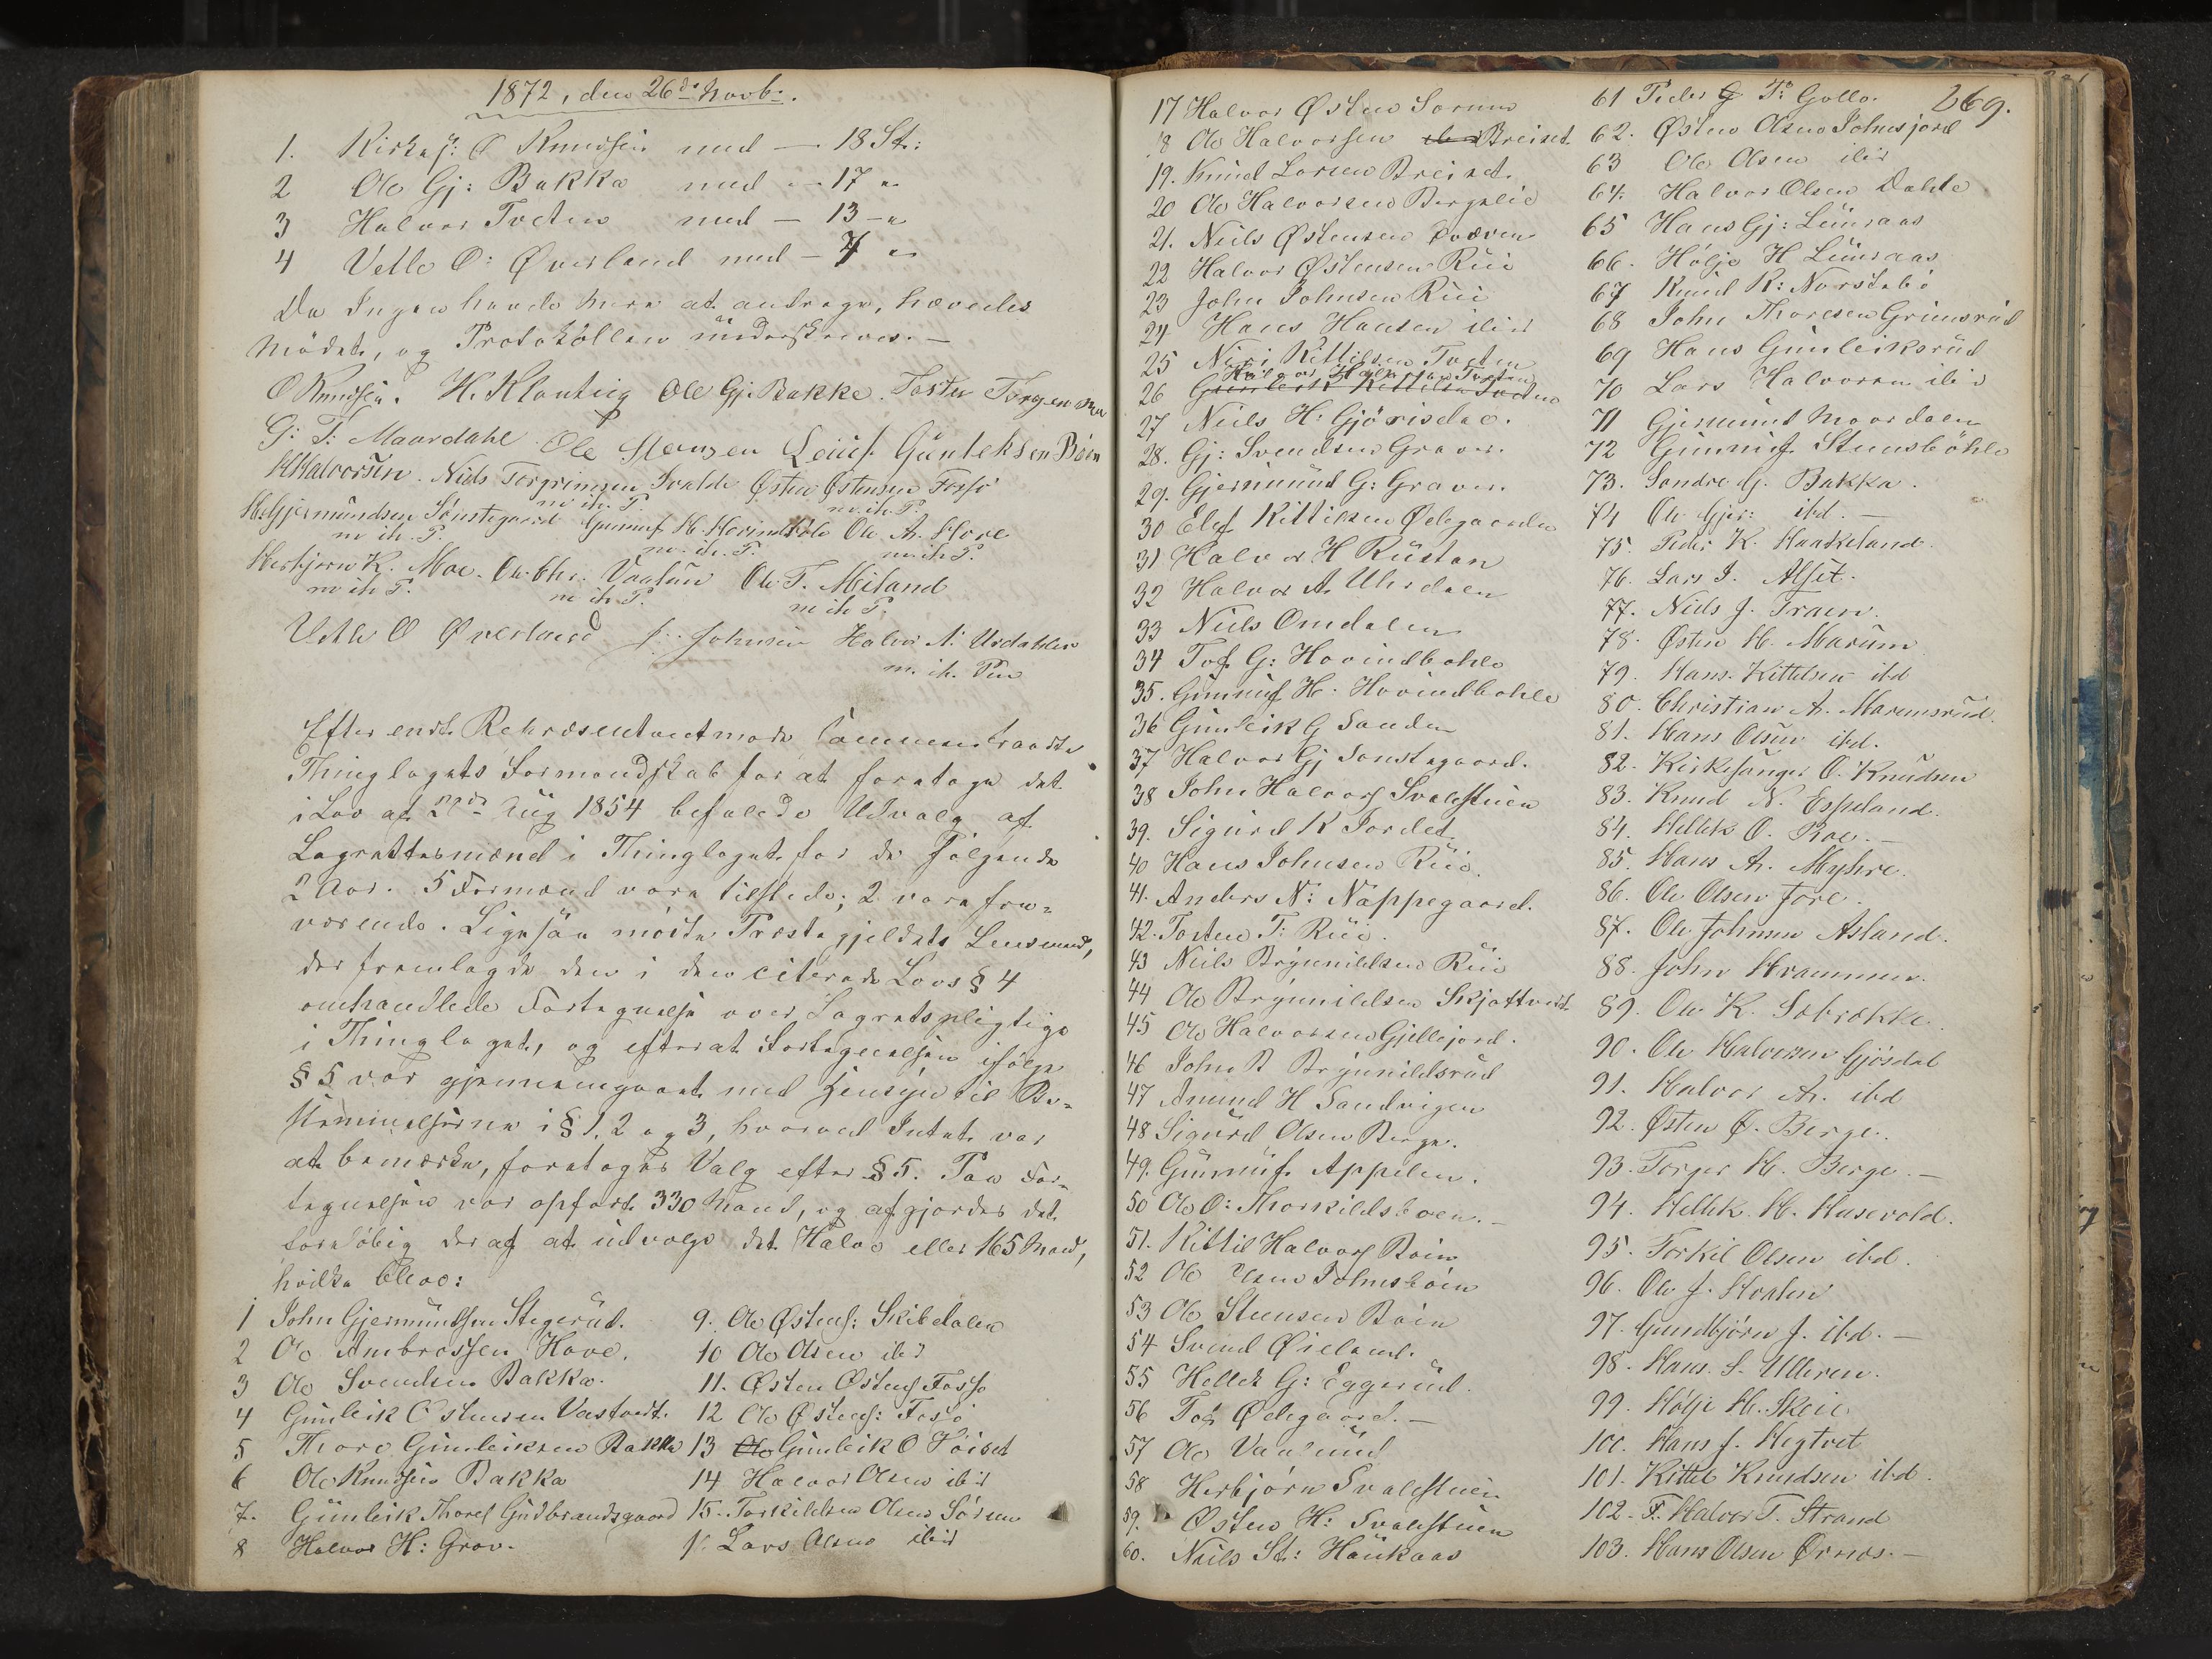 1872, den 26de Novb:.
1. Kirkes: O Knudsen med — 18 St:
2 Ole Gj: Bakka med — 17 "
3 Halvor Tveten med — 13 — "
4 Vetle O: Øverland med — 7 "
Da Ingen havde mere at andrage, hævedes
Mödet, og Protokollen underskreves. —
O Knudsen. H. Kloutnig Ole Gj. Bakke. Tosten Torgersen
G: T: Maardahl Ole Stensen Leiuf Gunleksen Böen
HHalvorsen. Niels Torgrimsen Ivalde Østen Østensen Fossö
m ih. P. m. ih. P.
H. Gjermundsen Sönstegaard Gunnuf H. Hovindbole Ole A. Hore
m ih. P. m. ih. P. m ih P.
Herbjörn K. Moe. Ole Chr. Vaalün Ole T. Miland
m ih P. m ih P. m ih P.
Vetle O Øverland J: Johnsen Halvor A: Urdahlen
m. ih. Pen
Efter endt Repræsentantmöde sammentraadte
Thinglagets Formandskab for at foretage det
i Lov af 22de Aug 1854 befalede Udvalg af
Lagrettesmænd i Thinglaget for de fölgende
2 Aar. 5 Formænd vare tilstede; 2 vare fra-
værende. Ligesaa mödte Præstegjeldets Lensmand,
der fremlagde den i den citerede Lovs § 4
omhandlede Fortegnelse over Lagretspligtige
i Thinglaget, og efterat Fortegnelsen ifölge
§ 5 var gjennemgaaet med Hensyn til Be-
stemmelserne i § 1, 2 og 3, hvorved Intet var
at bemærke, foretoges Valg efter § 5. Paa For-
tegnelsen var opfört 330 Mand, og afgjordes det
forelöbig deraf at udvælge det Halve eller 165 Mand,
hvilke bleve:
1 John Gjermundsen Stegerud.
2 Ole Ambrossen Hove.
3 Ole Svendsen Bakka.
4 Gunleik Østensen Vastveit.
5 Thore Gunleiksen Bakka
6 Ole Knudsen Bakka
7. Gunleik Thores Gudbrandsgaard
8 Halvor H: Grov.
9. Ole Østens: Skibdalen
10 Ole Olsen ibid
11. Østen Østens Fossö
12 Ole Østens: Fosö
13 Ole Gunleik O Höiset
14 Halvor Olsen ibid
15. Torkildsen Olsen Sörum
Lars Olsen ibid
269.
17 Halvor Østen Sorum
18 Ole Halvorsen Breiset
19. Knud Larsen Breiset.
20 Ole Halvorsen Bergelie
21. Niels Østensen
22 Halvor Østensen Rüe
23 John Johnsen Rüe
24 Hans Hansen ibid
25 Niri Kittilsen Tveten
Halvor Halvorsen Tveten
26 Gunleik Kittilsen Tveten
27 Niels H: Gjörisdal.
28. Gj: Svendsen Graver.
29. Gjermund G: Graver.
30 Elef Kittilsen Ødegaarden
31 Halvor H Rustan
32 Halvor A. Uhrdalen
33 Niels Omdalen
34 Tof G: Hovindbohle
35. Gunnuf H. Hovindbohle
36 Gunleik G Sanden
37 Halvor Gj Sonstegaard.
38 John Halvors Svalestuen
39. Sigurd K Jordet
40 Hans Johnsen Rüe.
41. Anders N: Nappegaard.
42. Tosten T: Rüe.
43 Niels Brynnildsen Rüe
44 Ole Brynnildsen Skjaftved
45 Ole Halvorsen Gjellejord.
46 John B Brynnildsrud
47 Amund H Sandvigen
48 Sigurd Olsen Berge.
49. Gunnuf Appelen.
50 Ole O: Thorkildsboen. —
51. Kittil Halvors Böin
52 Ole Olsen Johnsböin
53 Ole Stensen Böin
54 Svend Øieland.
55 Hellek G: Eggerud.
56 Tov Ødegaard. —
57 Ole Vaalund
58 Herbjörn Svalestuen
59. Østen H: Svalestuen
60. Niels St: Haukaas
61 Peder G T: Gollo.
62. Østen Olsen Johnsjord
63 Ole Olsen ibid
64. Halvor Olsen Dahle
65 Hans Gj: Leuraas
66. Hölje H Leuraas
67 Knud K: Norstebö
68 John Thoresen Grimsrud
69 Hans Gunleiksrud
70 Lars Halvorsen ibid
71 Gjermund Maardalen
72 Gunnuf Steensböhle
73. Sondre G. Bakka.
74 Ole Gjer: ibd. —
75. Peder K. Haaskeland.
76. Lars J. Alfset.
77. Niels J. Traen.
78. Østen H. Marum
79. Hans Kittelsen ibd
80. Christian A. Marumsrud.
81. Hans Olsen ibd.
82. Kirkesanger O. Knudsen
83. Knud N. Espeland.
84. Hellek O. Roe. —
85. Hans A. Myhre.
86. Ole Olsen Jore.
87. Ole Johnsen Asland.
88. John Hrammen.
89. Ole K. Sebrekke.
90. Ole Halvorsen Gjösdal
91. Halvor A. ibd
92. Østen Ø. Berge.
93. Torger H. Berge. —
94. Hellek H. Husevold.
95. Torkil Olsen ibd.
96. Ole J. Hvalen
97. Gundbjörn J. ibd. —
98. Hans S. Ulleren.
99. Hölje H. Skeie
100. Hans J. Hegtvet
101. Kittil Knudsen ibd.
102. F. Halvor T. Strand
103. Hans Olsen Ørnes. —